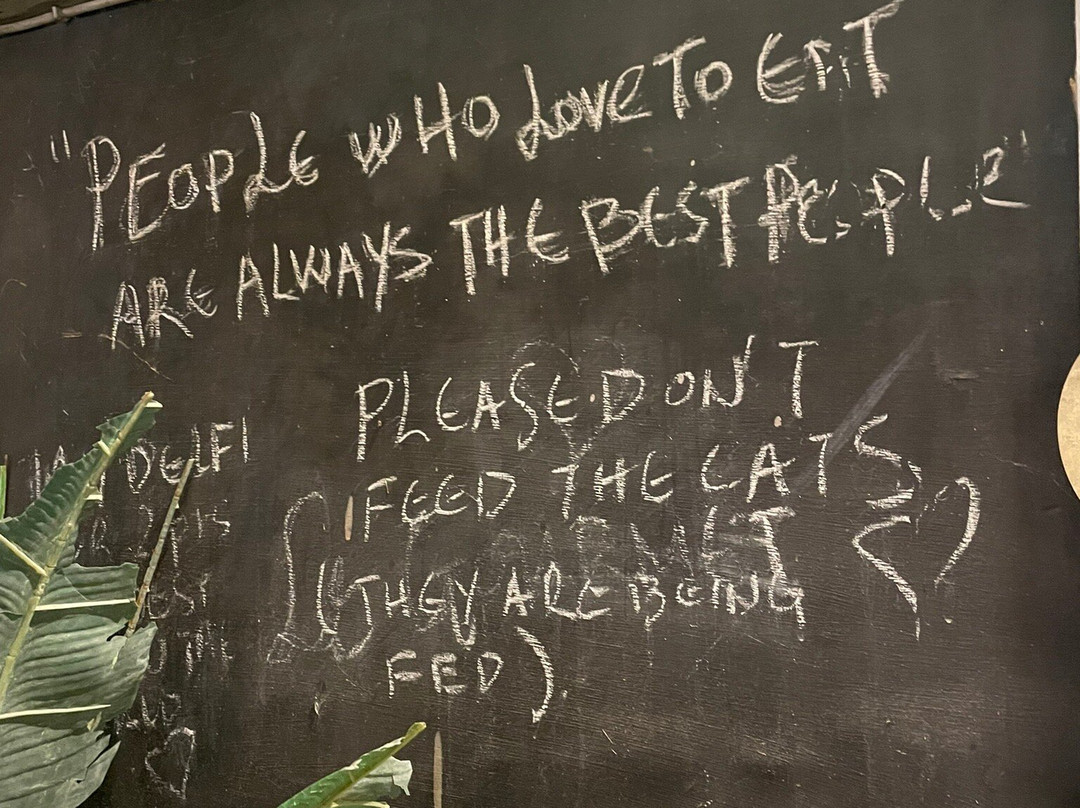 "PEOPLE WHO LOVE TO EAT
ARE ALWAYS THE BEST PEOPLE"
PLEASE DON'T
FEED THE CATS
(THEY ARE BEING
FED).
DELFI